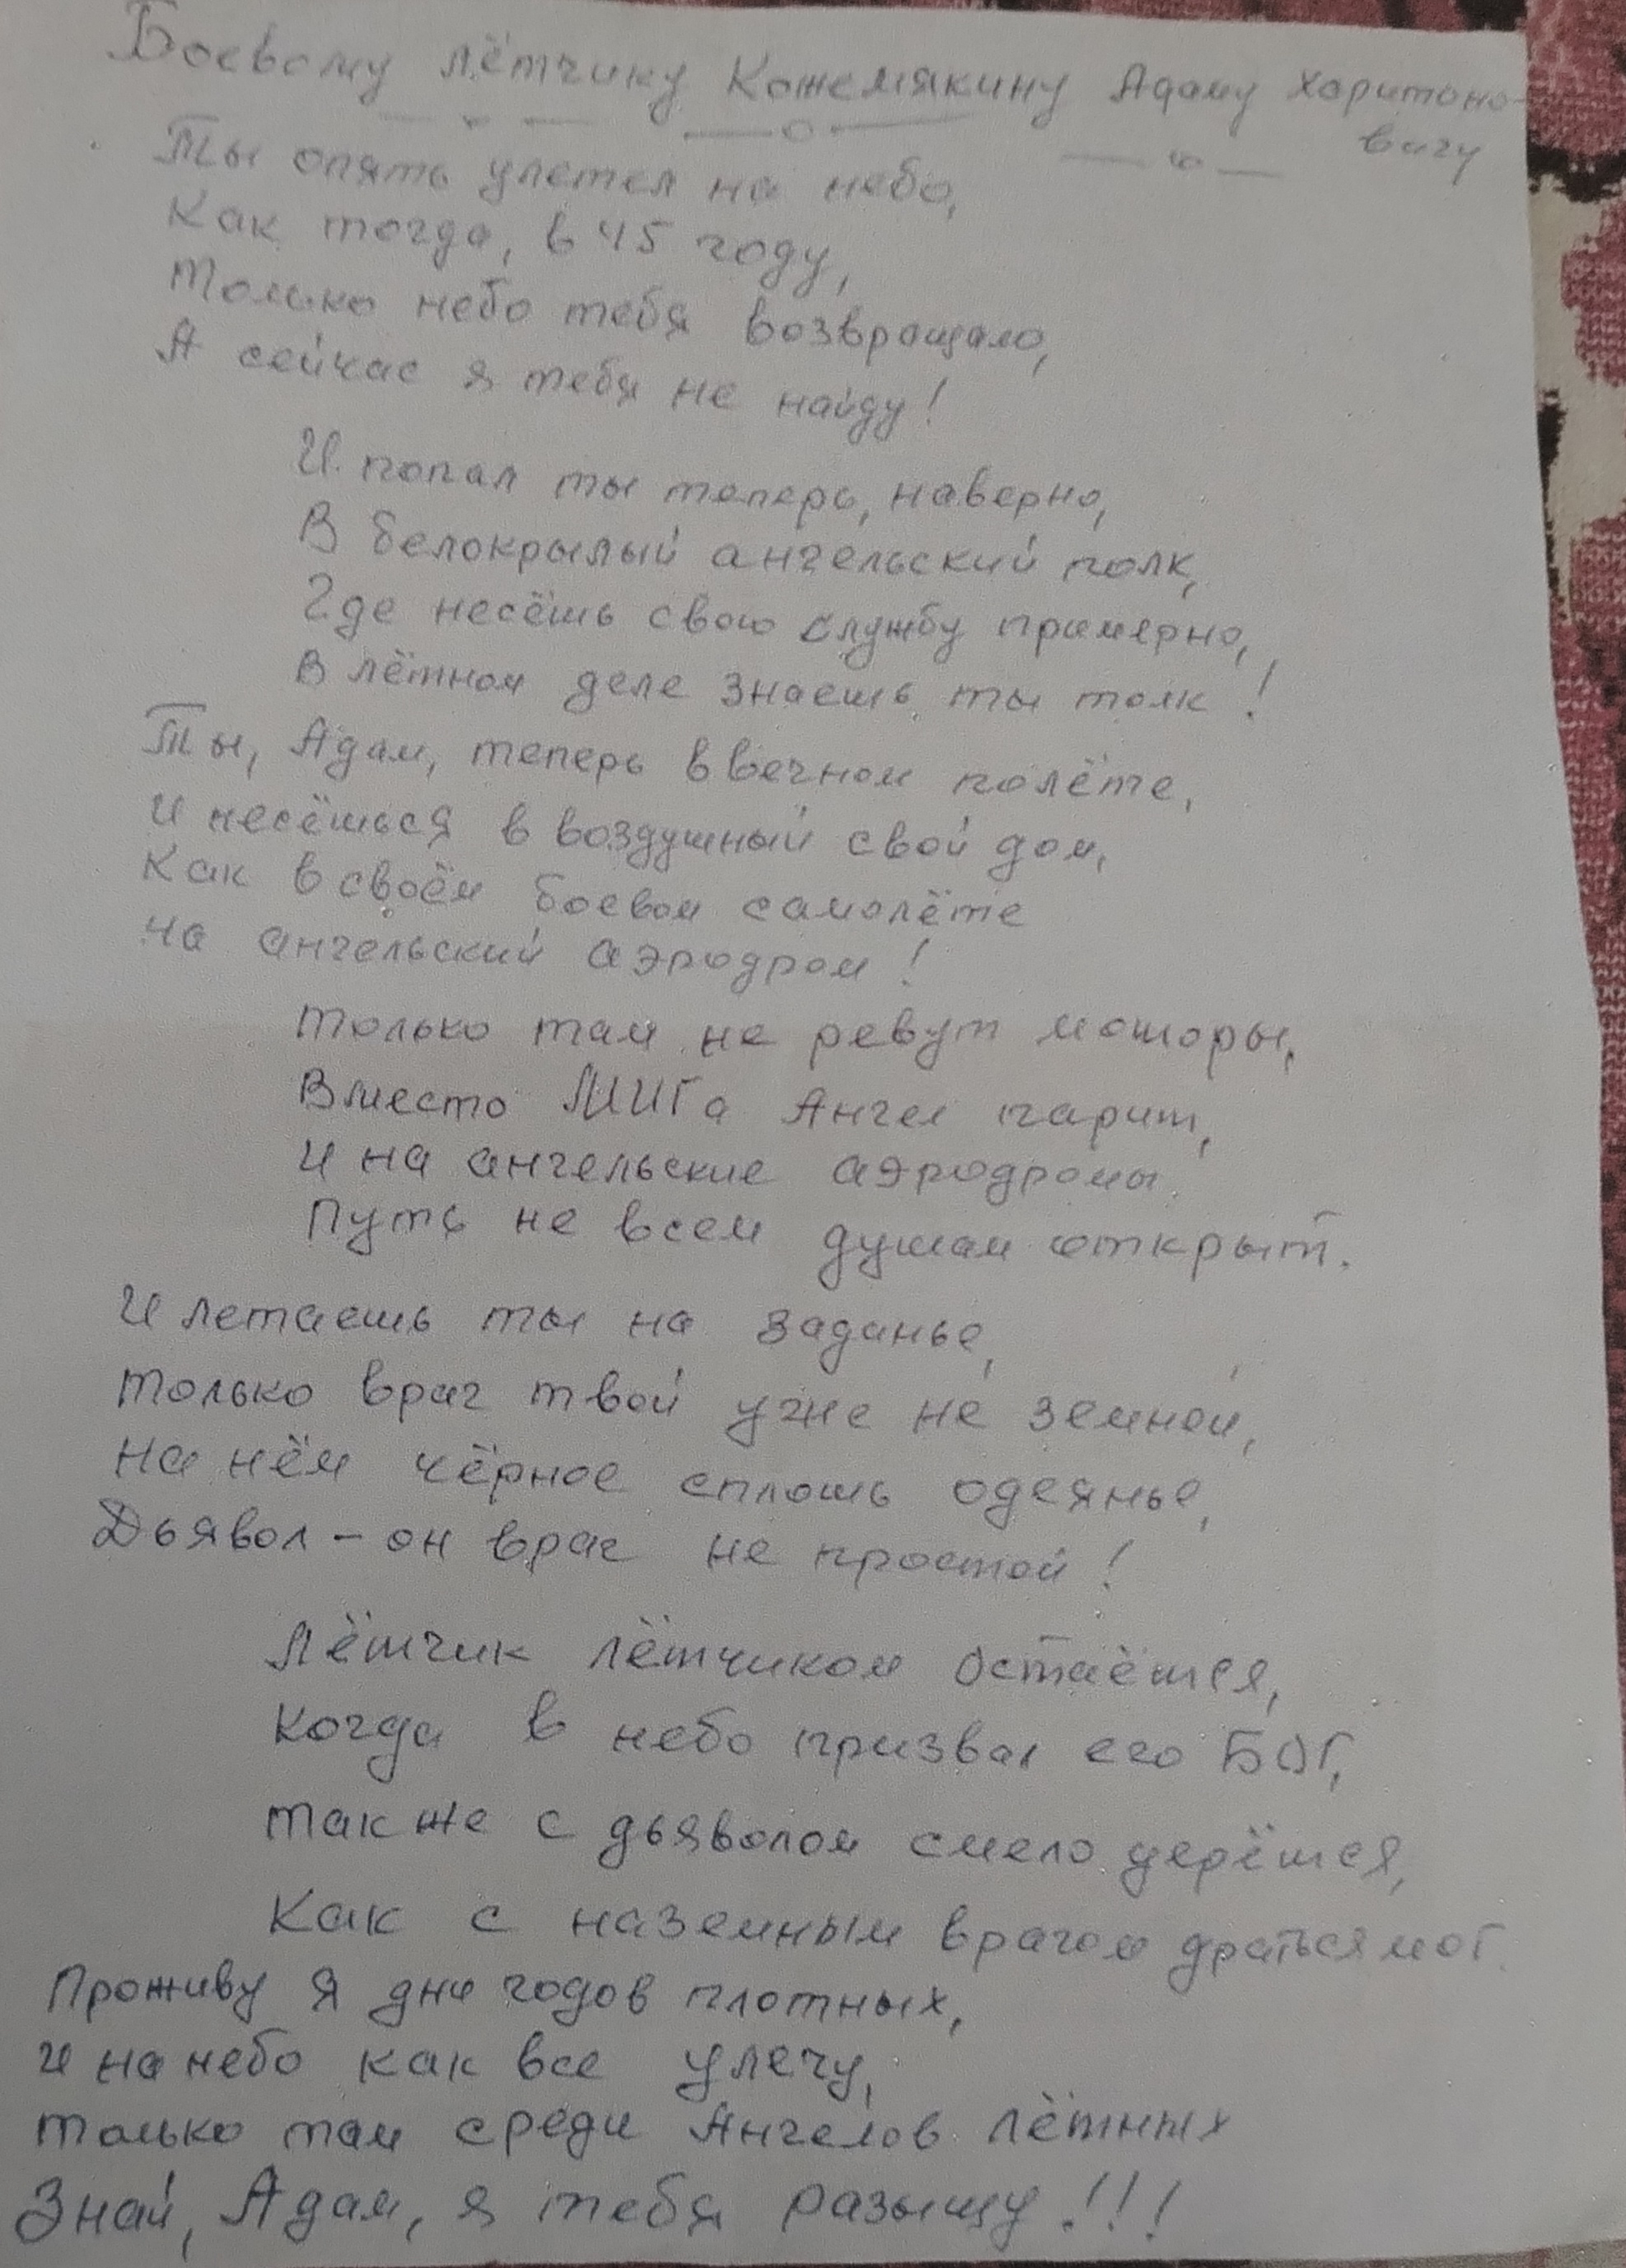 Боевому лётчику Кожемякину Адаму Харитоно-
вичу
Ты опять улетел на небо,
Как тогда, в 45 году,
Только небо тебя возвращало,
А сейчас я тебя не найду!
И попал ты теперь, наверно,
В белокрылый ангельский полк,
Где несёшь свою службу примерно,
В лётном деле знаешь ты толк!
Ты, Адам, теперь в вечном полёте,
И несёшься в воздушный свой дом,
Как в своём боевом самолёте
На ангельский аэродром!
Только там не ревут моторы,
Вместо МИГа Ангел парит,
И на ангельские аэродромы
Путь не всем душам открыт.
И летаешь ты на заданье,
Только враг твой уже не земной,
На нём чёрное сплошь одеянье,
Дьявол – он враг не простой!
Лётчик лётчиком остаётся,
Когда в небо призвал его БОГ,
Также с дьяволом смело дерётся,
Как с наземным врагом драться мог.
Проживу я дни годов плотных,
И на небо как все улечу,
Только там среди Ангелов лётных
Знай, Адам, я тебя разыщу!!!